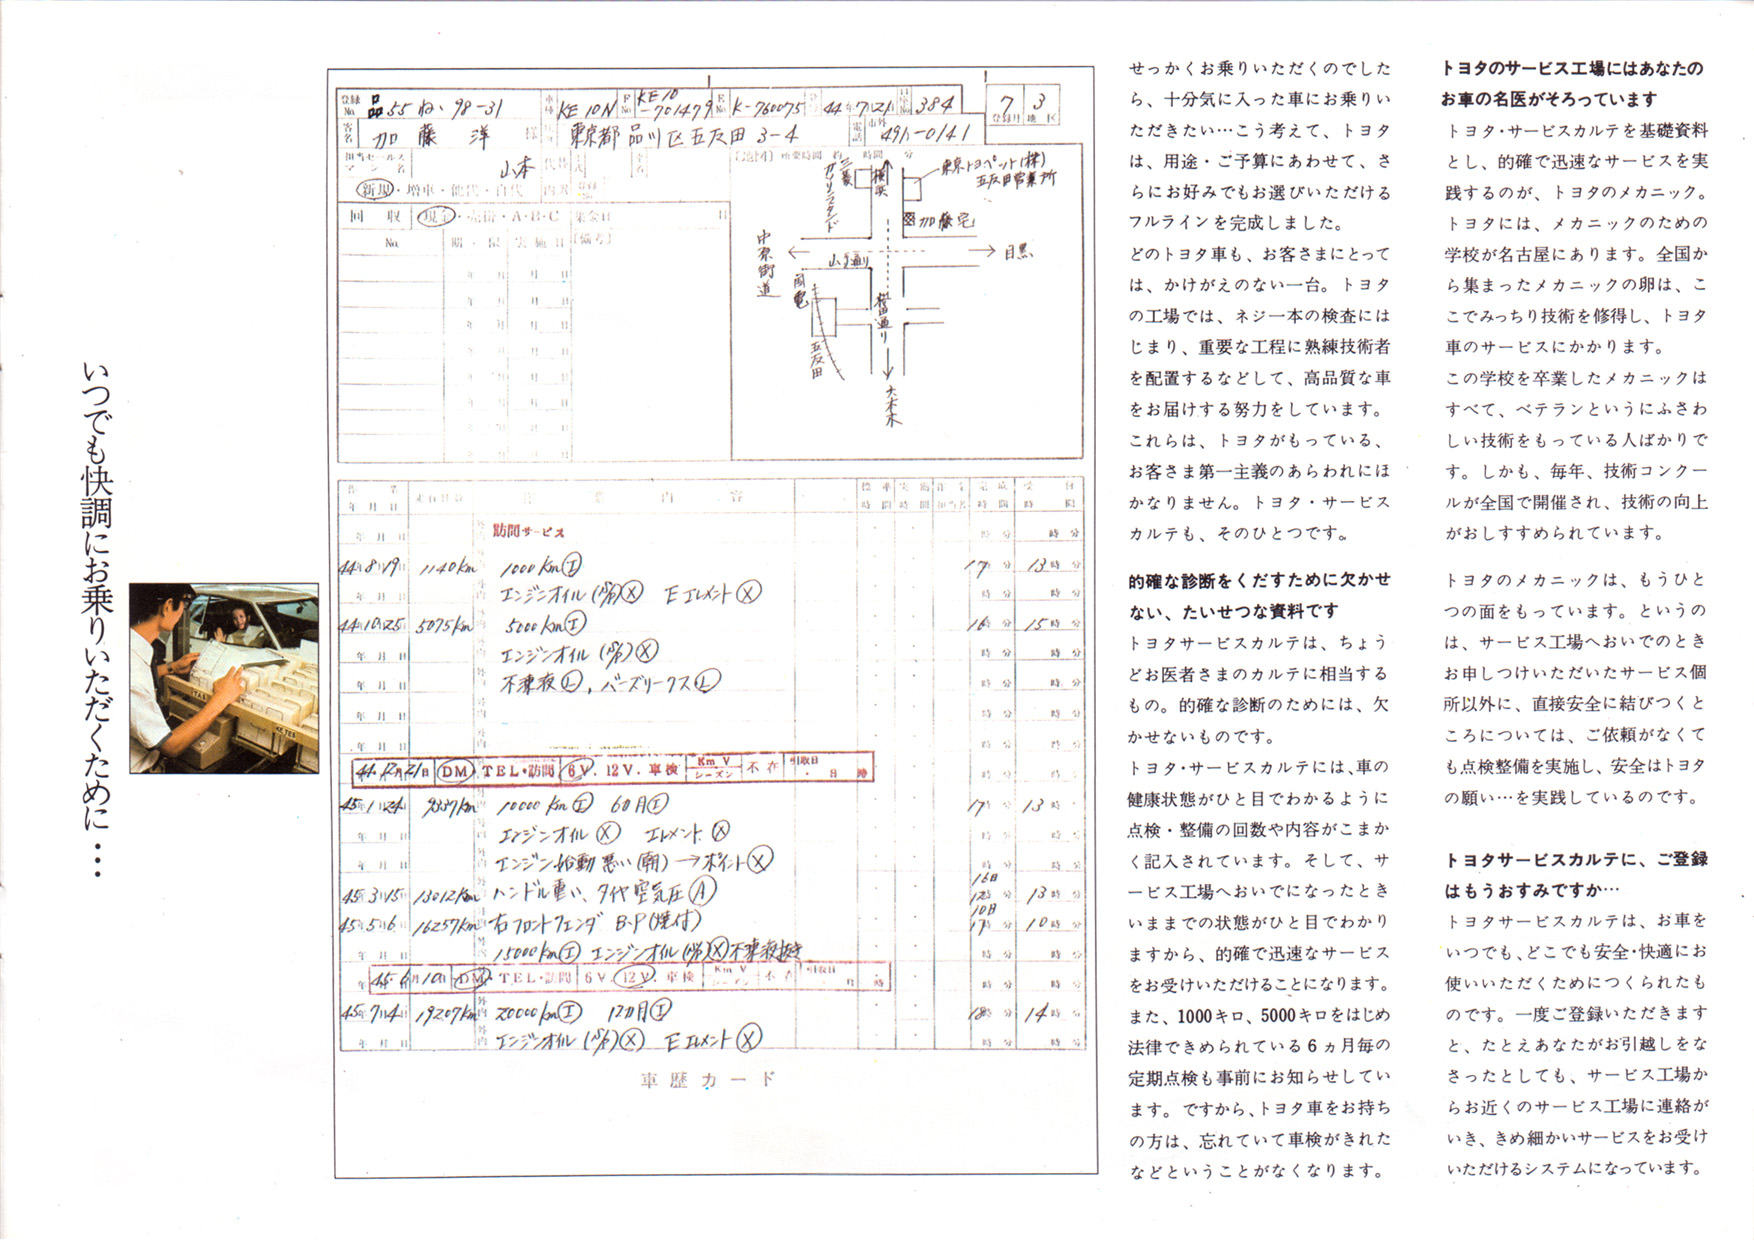 いつでも快調にお乗りいただくために…
登録No. 品55 ね・98-31 車種 KE10N F No. KE10-701479 E No. K-760075 44年7月21 384 7 3
登録月 地区
客名 加藤 洋 様 東京都品川区五反田3-4 電話 市外 491-0141
担当セールスマン名 山本
新規・増車・他代・自代
回収 現金・売掛・A・B・C 集金日 日
No. 実施日 〔備考〕
〔地図〕 所要時間 約 時間 分
三菱ガソリンスタンド
横浜
東京トヨペット(株)
五反田営業所
加藤宅
中原街道
山手通り
目黒
国電
五反田
桜田通り
年月日 内容
訪問サービス
44年8月19日 1140Km 1000Km Ⓘ 17時 13時
エンジンオイル Ⓧ Eエレメント Ⓧ
44年10月25日 5075Km 5000Km Ⓘ 16時 15時
エンジンオイル Ⓧ
不凍液Ⓛ,バーズリークスⓁ
44.12月21日 DM・TEL・訪問 6V.12V.車検 Km V シーズン 不在 引取日 ・日 時
45年1月24 9337Km 10000Km Ⓘ 6カ月Ⓘ 17時 13時
エンジンオイル Ⓧ エレメント Ⓧ
エンジン始動悪い(朝)→ポイントⓍ
45年3月15日 13012Km ハンドル重い、タイヤ空気圧Ⓐ 16日 12時 13時
45年5月6日 16257Km 右フロントフェンダ B・P(焼付) 10日 17時 10時
15000Km Ⓘ エンジンオイル Ⓧ不凍液抜き
45年6月10日 DM・TEL・訪問 6V.12V.車検 Km V シーズン 不在 引取日 ・日 時
45年7月4日 19207Km 20000Km Ⓘ 12カ月Ⓘ 18時 14時
エンジンオイル Ⓧ Eエレメント Ⓧ
車歴カード
せっかくお乗りいただくのでした
ら、十分気に入った車にお乗りい
ただきたい…こう考えて、トヨタ
は、用途・ご予算にあわせて、さ
らにお好みでもお選びいただける
フルラインを完成しました。
どのトヨタ車も、お客さまにとって
は、かけがえのない一台。トヨタ
の工場では、ネジ一本の検査には
じまり、重要な工程に熟練技術者
を配置するなどして、高品質な車
をお届けする努力をしています。
これらは、トヨタがもっている、
お客さま第一主義のあらわれにほ
かなりません。トヨタ・サービス
カルテも、そのひとつです。
的確な診断をくだすために欠かせ
ない、たいせつな資料です
トヨタサービスカルテは、ちょう
どお医者さまのカルテに相当する
もの。的確な診断のためには、欠
かせないものです。
トヨタ・サービスカルテには、車の
健康状態がひと目でわかるように
点検・整備の回数や内容がこまか
く記入されています。そして、サ
ービス工場へおいでになったとき
いままでの状態がひと目でわかり
ますから、的確で迅速なサービス
をお受けいただけることになります。
また、1000キロ、5000キロをはじめ
法律できめられている6ヵ月毎の
定期点検も事前にお知らせしてい
ます。ですから、トヨタ車をお持ち
の方は、忘れていて車検がきれた
などということがなくなります。
トヨタのサービス工場にはあなたの
お車の名医がそろっています
トヨタ・サービスカルテを基礎資料
とし、的確で迅速なサービスを実
践するのが、トヨタのメカニック。
トヨタには、メカニックのための
学校が名古屋にあります。全国か
ら集まったメカニックの卵は、こ
こでみっちり技術を修得し、トヨタ
車のサービスにかかります。
この学校を卒業したメカニックは
すべて、ベテランというにふさわ
しい技術をもっている人ばかりで
す。しかも、毎年、技術コンクー
ルが全国で開催され、技術の向上
がおしすすめられています。
トヨタのメカニックは、もうひと
つの面をもっています。というの
は、サービス工場へおいでのとき
お申しつけいただいたサービス個
所以外に、直接安全に結びつくと
ころについては、ご依頼がなくて
も点検整備を実施し、安全はトヨタ
の願い…を実践しているのです。
トヨタサービスカルテに、ご登録
はもうおすみですか…
トヨタサービスカルテは、お車を
いつでも、どこでも安全・快適にお
使いいただくためにつくられたも
のです。一度ご登録いただきます
と、たとえあなたがお引越しをな
さったとしても、サービス工場か
らお近くのサービス工場に連絡が
いき、きめ細かいサービスをお受け
いただけるシステムになっています。